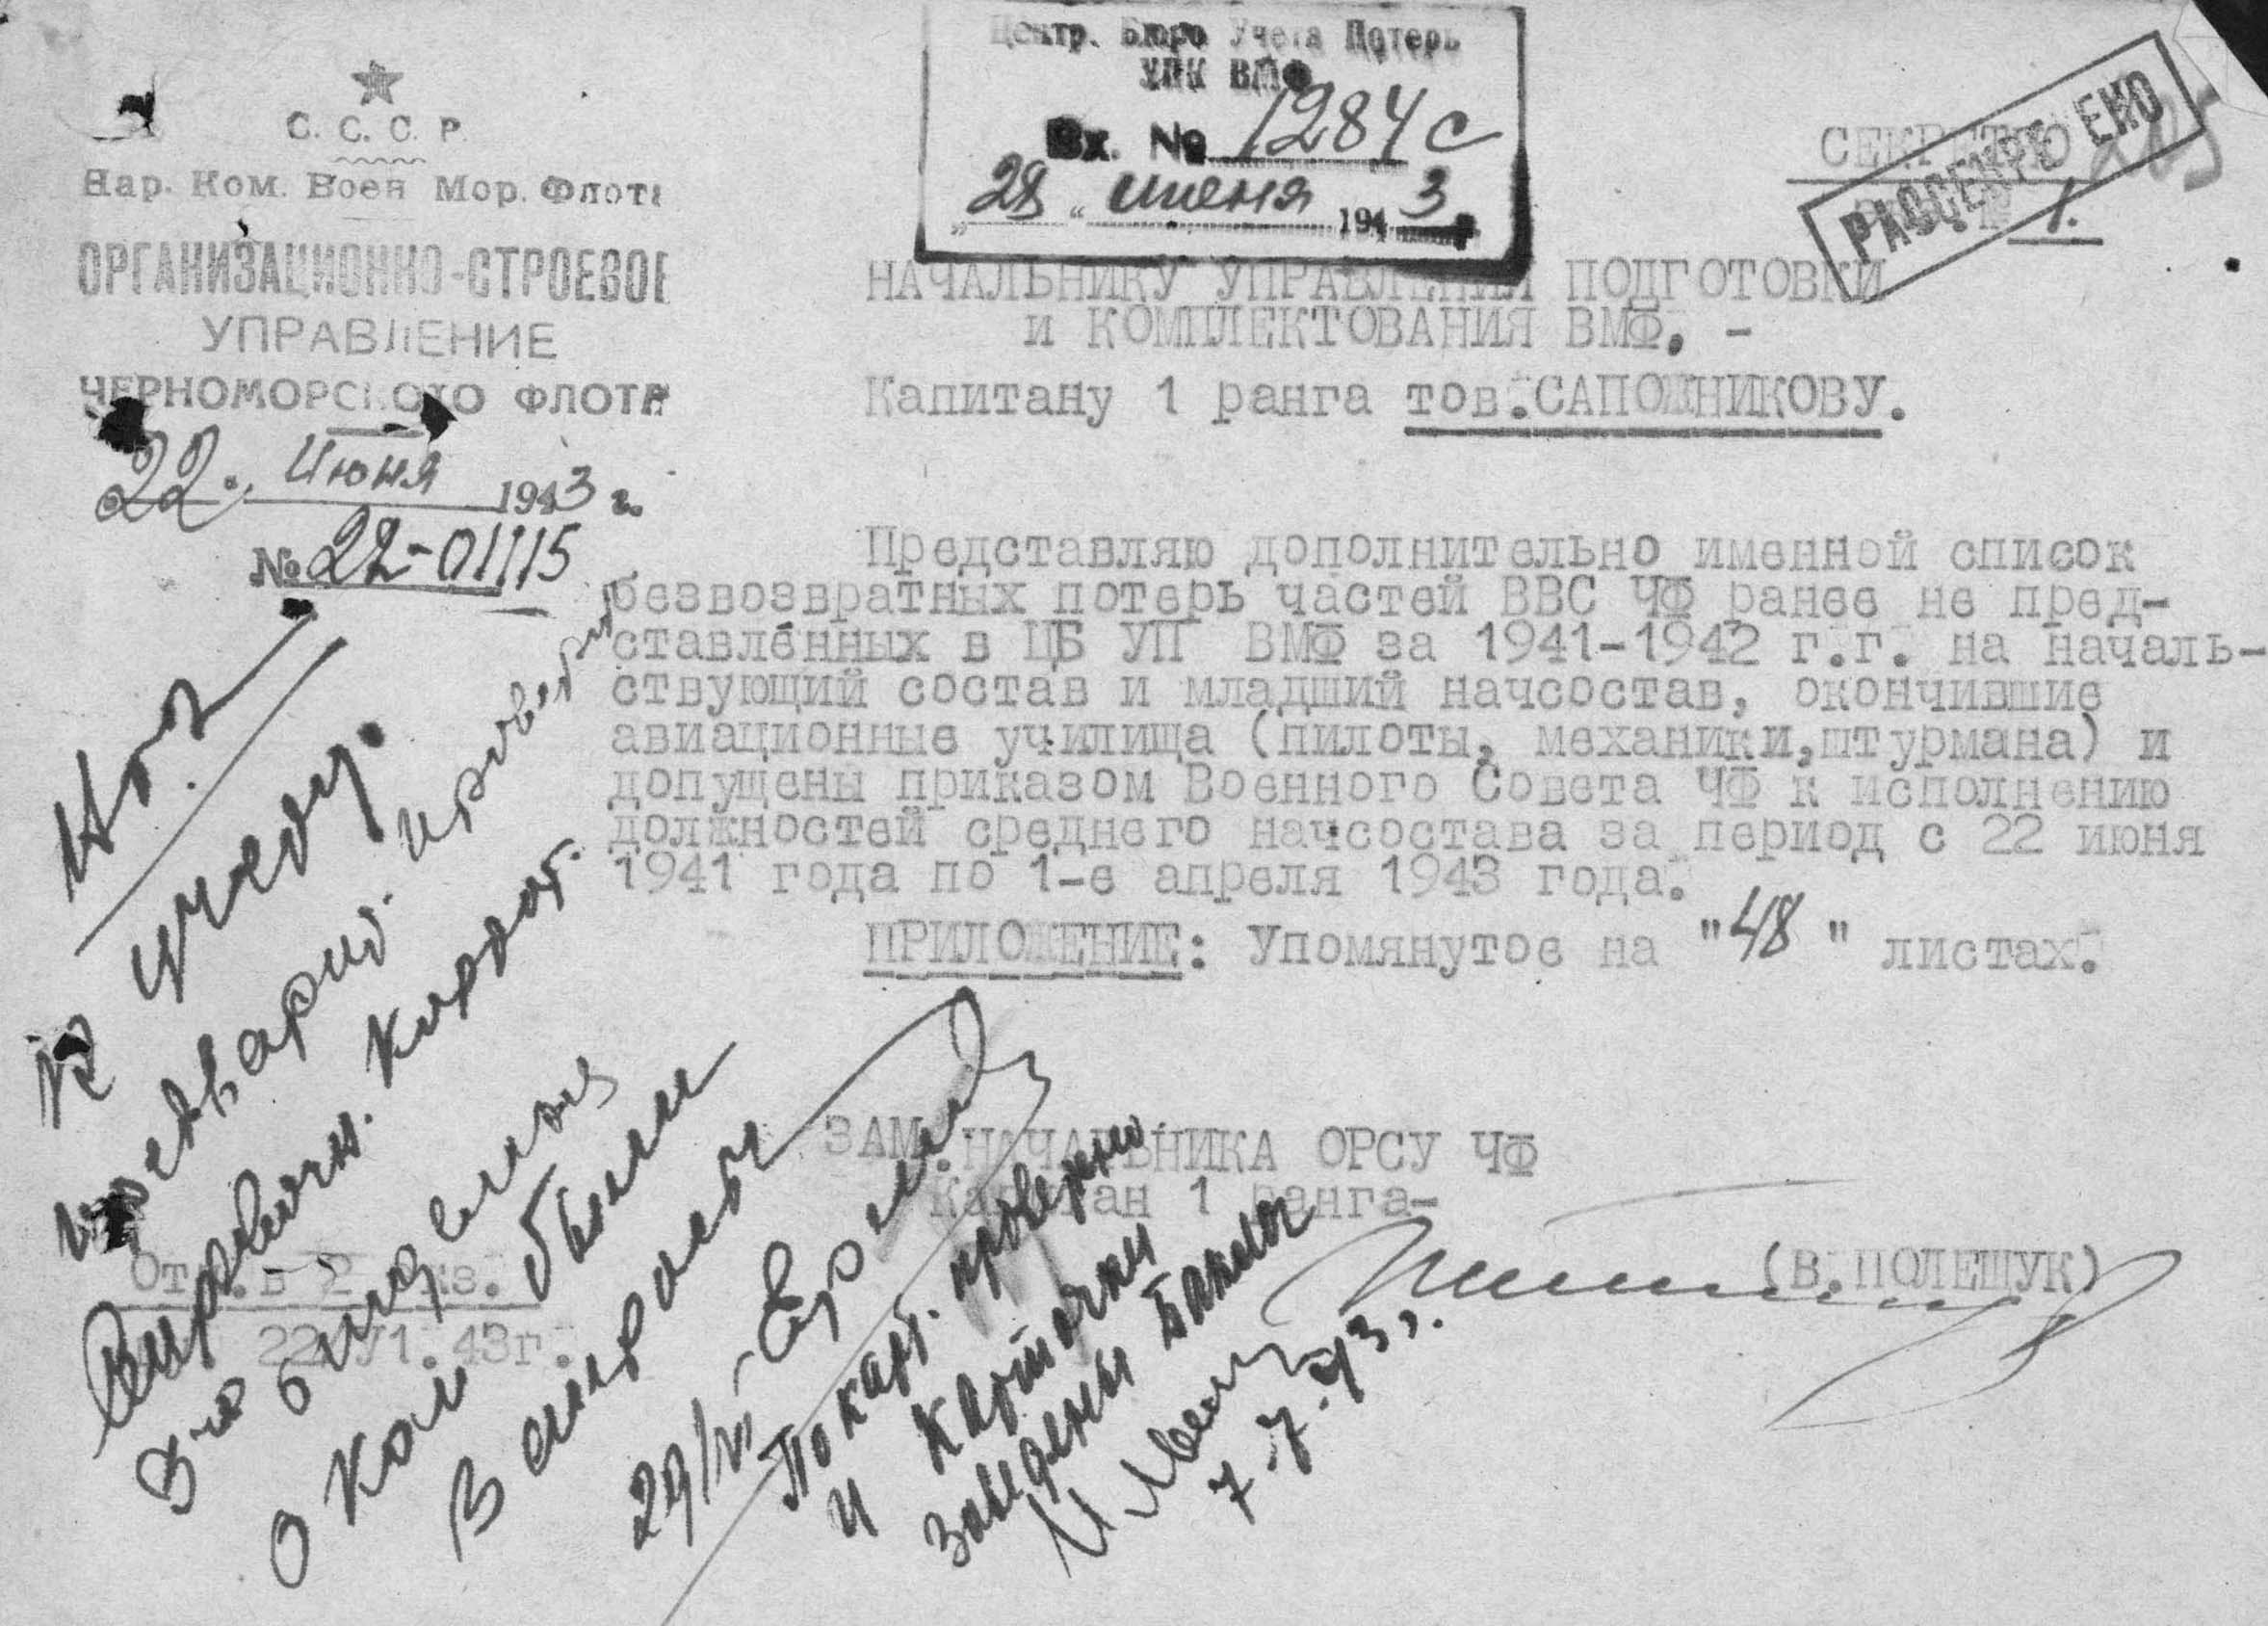 С. С. С. Р.
Нар. Ком. Воен Мор. Флота
ОРГАНИЗАЦИОННО-СТРОЕВОЕ
УПРАВЛЕНИЕ
ЧЕРНОМОРСКОГО ФЛОТА
22. Июня 1943 г.
№ 22-01115
Центр. Бюро Учета Потерь
УПК ВМФ
Вх. № 1284с
„28“ июня 1943 г.
СЕКРЕТНО
РАССЕКРЕЧЕНО
№ 1.
НАЧАЛЬНИКУ УПРАВЛЕНИЯ ПОДГОТОВКИ
и КОМПЛЕКТОВАНИЯ ВМФ. -
Капитану 1 ранга тов.САПОЖНИКОВУ.
Представляю дополнительно именной список
безвозвратных потерь частей ВВС ЧФ ранее не пред-
ставленных в ЦБ УП ВМФ за 1941-1942 г.г. на началь-
ствующий состав и младший начсостав, окончившие
авиационные училища (пилоты, механики,штурмана) и
допущены приказом Военного Совета ЧФ к исполнению
должностей среднего начсостава за период с 22 июня
1941 года по 1-е апреля 1943 года.
ПРИЛОЖЕНИЕ: Упомянутое на "48" листах.
ЗАМ.НАЧАЛЬНИКА ОРСУ ЧФ
Капитан 1 ранга-
(В.ПОЛЕЩУК)
Отп.в 2 кз.
22/V1.43г.
К учету.
о ком были
29/VI
По карт. проверено
и карточки
заведены
7.7.43 г.